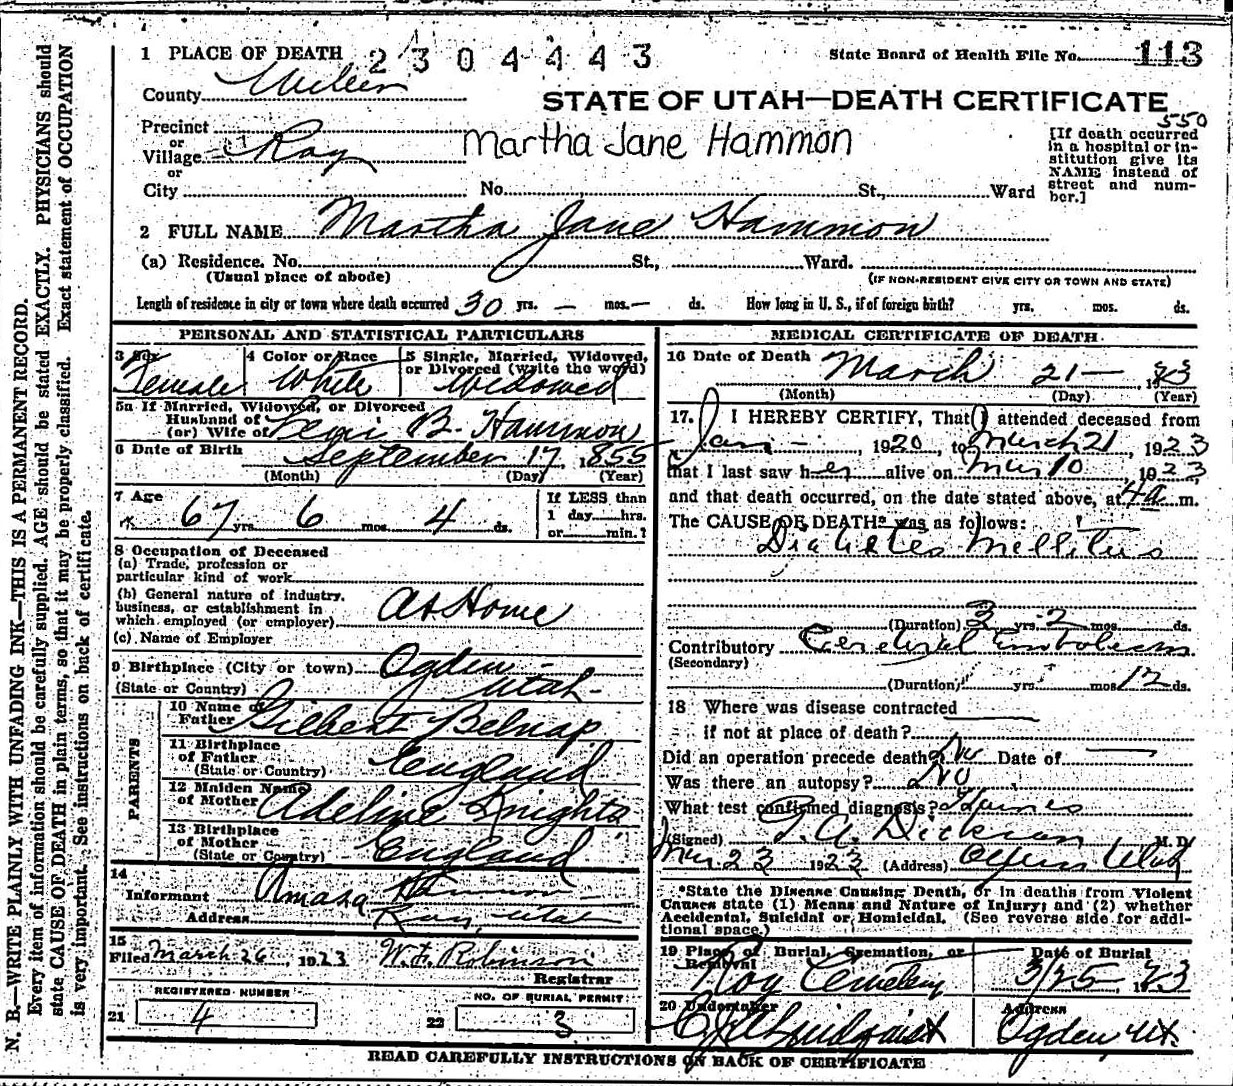 1 PLACE OF DEATH 2304443 State Board of Health File No. 113
County Weber
STATE OF UTAH—DEATH CERTIFICATE
550
Precinct
or
Village Roy
or
City No. St., Ward
Martha Jane Hammon
[If death occurred
in a hospital or in-
stitution give its
NAME instead of
street and num-
ber.]
2 FULL NAME Martha Jane Hammon
(a) Residence. No. St., Ward.
(Usual place of abode) (IF NON-RESIDENT GIVE CITY OR TOWN AND STATE)
Length of residence in city or town where death occurred 30 yrs. — mos. — ds. How long in U. S., if of foreign birth? yrs. mos. ds.
PERSONAL AND STATISTICAL PARTICULARS
3 Sex Female
4 Color or Race White
5 Single, Married, Widowed,
or Divorced (write the word)
Widowed
5a If Married, Widowed, or Divorced
Husband of
(or) Wife of Levi B. Hammon
6 Date of Birth September 17, 1855
(Month) (Day) (Year)
7 Age 67 yrs. 6 mos. 4 ds.
If LESS than
1 day hrs.
or min.?
8 Occupation of Deceased
(a) Trade, profession or
particular kind of work
(b) General nature of industry,
business, or establishment in
which employed (or employer) At Home
(c) Name of Employer
9 Birthplace (City or town) Ogden
(State or Country) Utah
PARENTS
10 Name of
Father Gilbert Belnap
11 Birthplace
of Father England
(State or Country)
12 Maiden Name
of Mother Adeline Knights
13 Birthplace
of Mother England
(State or Country)
14
Informant Amasa Hammon
Address Roy, Utah
15
Filed March 26, 1923 W. F. Robinson
Registrar
REGISTERED NUMBER
21 4
NO. OF BURIAL PERMIT
22 3
MEDICAL CERTIFICATE OF DEATH
16 Date of Death March 21— 1923
(Month) (Day) (Year)
17. I HEREBY CERTIFY, That (I) attended deceased from
Jan — , 1920, to March 21, 1923
that I last saw her alive on Mar 10 1923,
and that death occurred, on the date stated above, at 4a m.
The CAUSE OF DEATH* was as follows:
Diabetes Mellitus
(Duration) 3 yrs. 2 mos. ds.
Contributory Cerebral Embolism
(Secondary)
(Duration) yrs. mos. 12 ds.
18 Where was disease contracted
if not at place of death?
Did an operation precede death? No Date of —
Was there an autopsy? No
What test confirmed diagnosis?
(Signed) M. D.
Mar 23 1923 (Address) Ogden Utah
*State the Disease Causing Death, or in deaths from Violent
Causes state (1) Means and Nature of Injury; and (2) whether
Accidental, Suicidal or Homicidal. (See reverse side for addi-
tional space.)
19 Place of Burial, Cremation, or
Removal
Roy Cemetery
Date of Burial
3/25, 1923
20 Undertaker
Lindquist
Address
Ogden, Ut.
READ CAREFULLY INSTRUCTIONS ON BACK OF CERTIFICATE
N. B.—WRITE PLAINLY WITH UNFADING INK—THIS IS A PERMANENT RECORD.
Every item of information should be carefully supplied. AGE should be stated EXACTLY. PHYSICIANS should
state CAUSE OF DEATH in plain terms, so that it may be properly classified. Exact statement of OCCUPATION
is very important. See instructions on back of certificate.